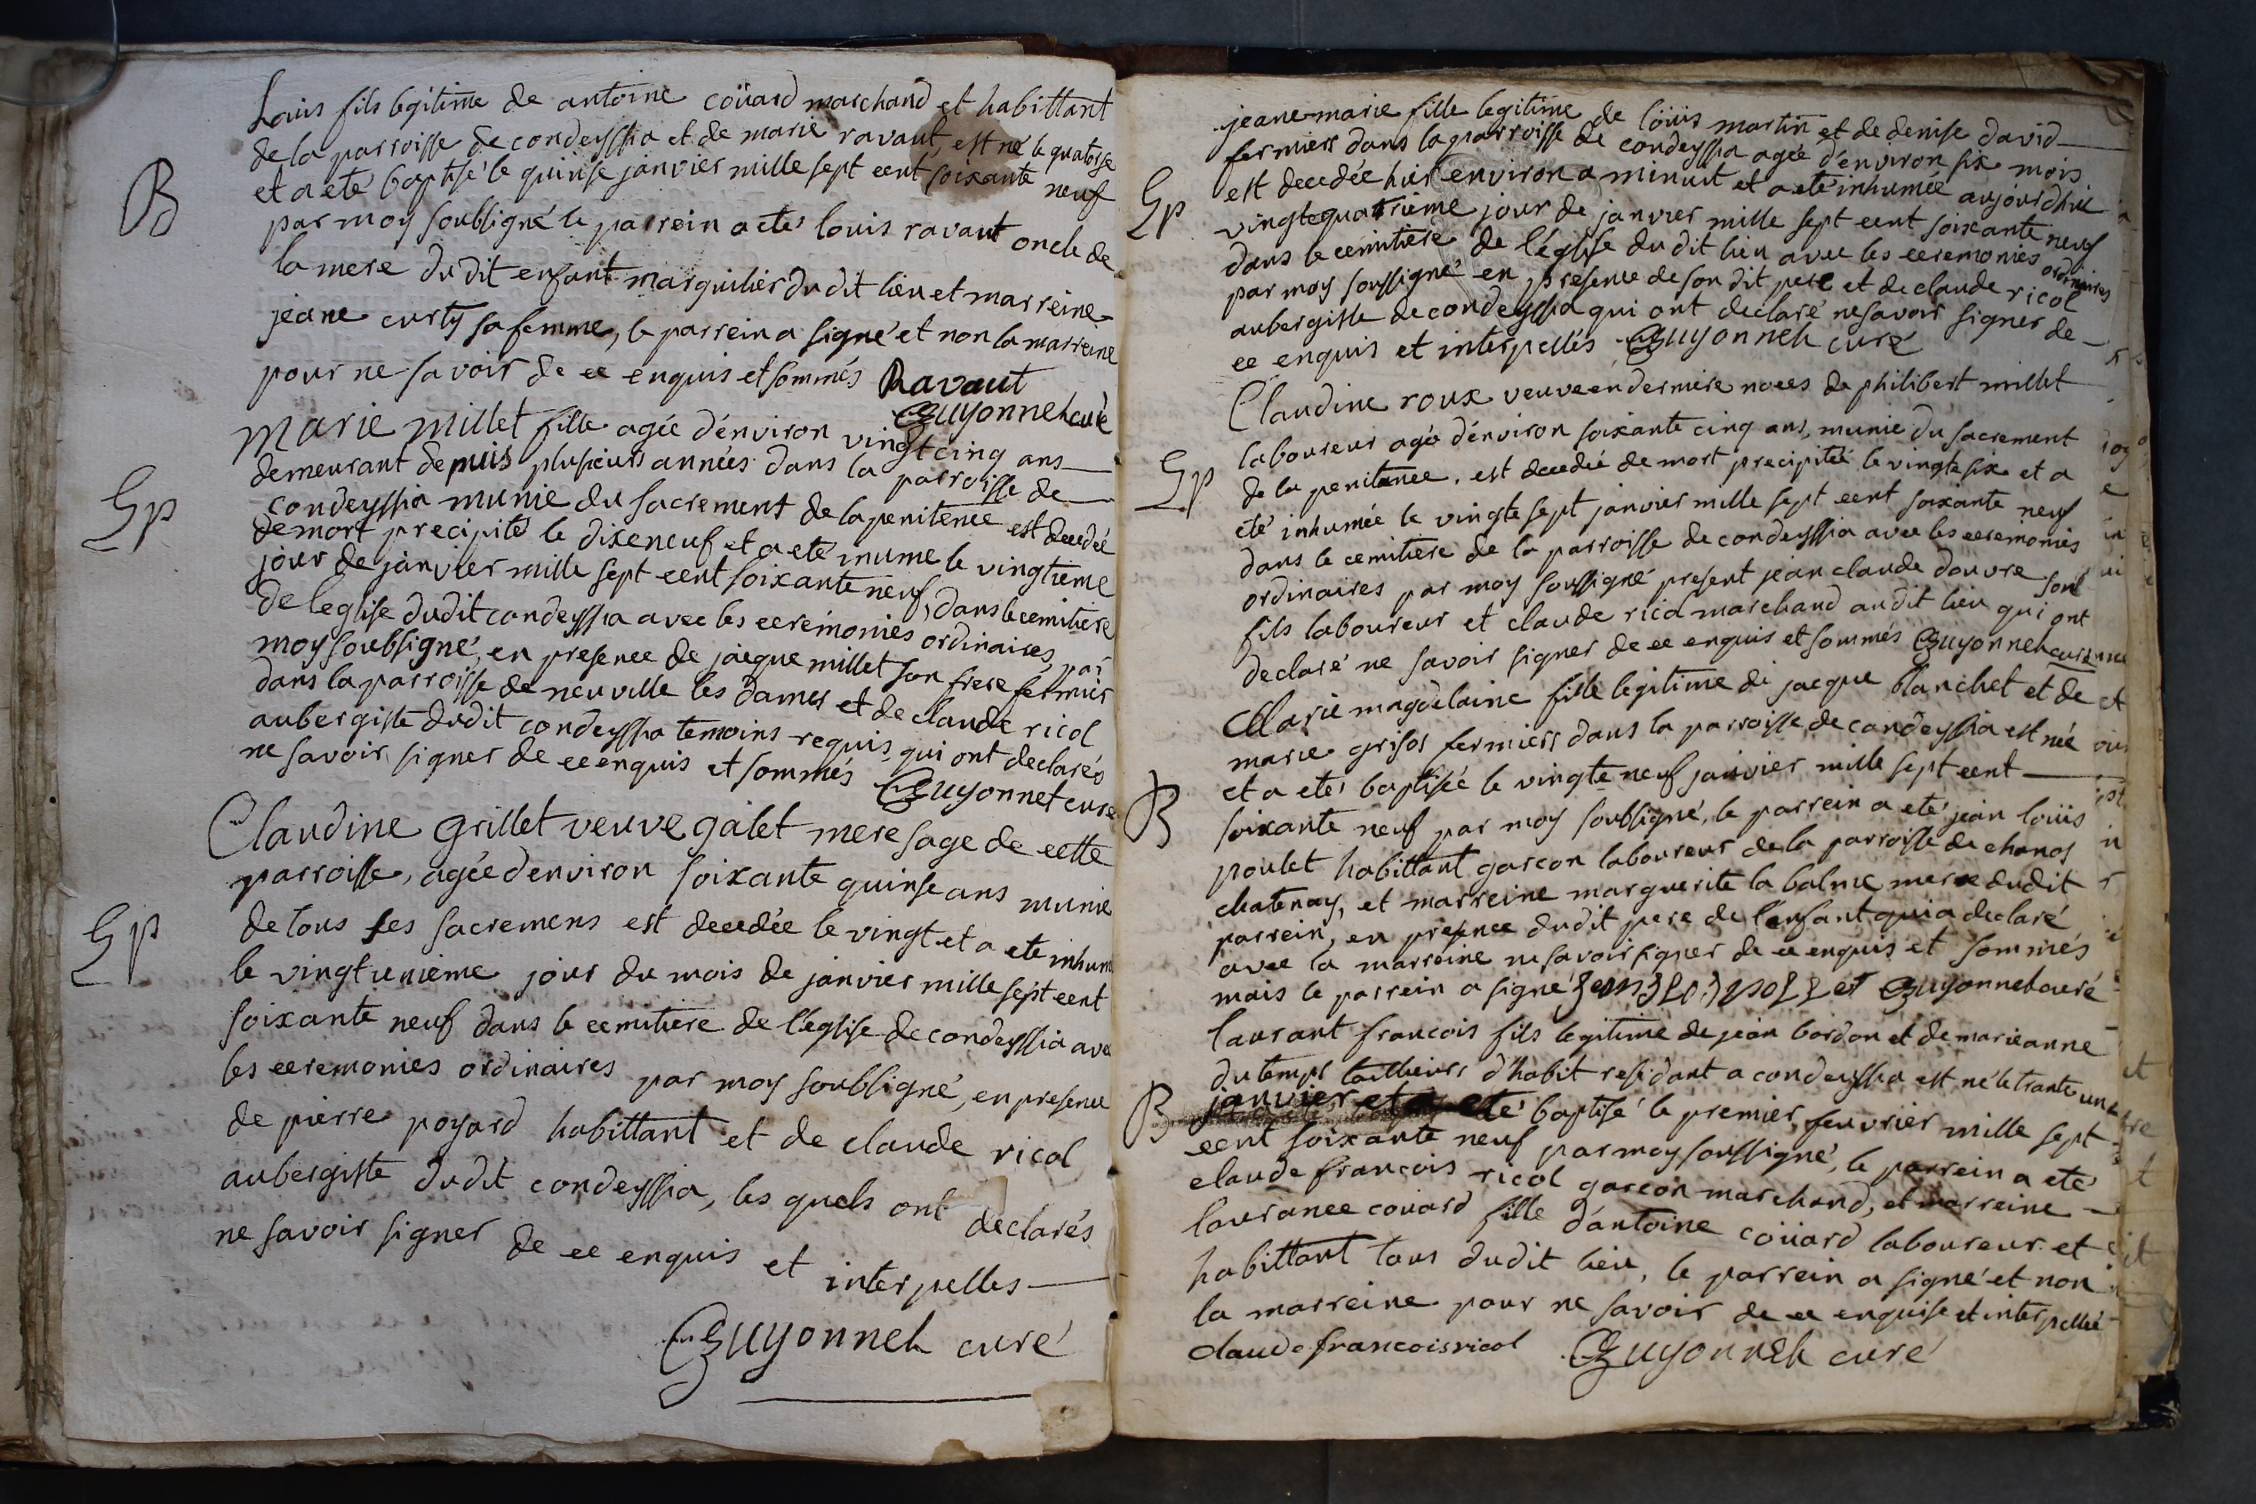 Louis fils legitime de antoine coüard marchand et habittant
de la parroisse de condeyssia et de marie ravaut, est né le quatorse
B
et a eté baptisé le quinse janvier mille sept cent soixante neuf
par moy soubsigné le parrein a eté louis ravaut oncle de
la mere du dit enfant marguilier du dit lieu et marreine
jeane curty sa femme, le parrein a signé et non la marreine
pour ne savoir de ce enquis et sommés Ravaut
Guyonnet curé
Marie millet fille agée d'environ vingt cinq ans
demeurant depuis plusieurs années dans la parroisse de
Sp
condeyssia munie du sacrement de la penitence est decedée
de mort precipité le dixeneuf et a eté inumé le vingtieme
jour de janvier mille sept cent soixante neuf, dans le cemitiere
de leglise dudit condeyssia avec les ceremonies ordinaires, par
moy soubsigné, en presence de jacque millet son frere fermier
dans la parroisse de neuville les dames et de claude ricol
aubergiste dudit condeyssia temoins requis qui ont declarés
ne savoir signer de ce enquis et sommés Guyonnet curé
Claudine Grillet veuve galet mere sage de cette
parroisse, agée denviron soixante quinse ans munie
Sp
de tous ses sacremens est decedée le vingt et a eté inhum
le vingt unieme jour du mois de janvier mille sept cent
soixante neuf dans le cemitiere de l'eglise de condeyssia avec
les ceremonies ordinaires par moy soubsigné, en presence
de pierre poyard habittant et de claude ricol
aubergiste dudit condeyssia, les quels ont declarés
ne savoir signer de ce enquis et interpelles
Guyonnet curé
jeane-marie fille legitime de loüis martin et de denise david
fermiers dans la parroisse de condeyssia agée d'environ six mois
Sp
est decedée hier environ a minuit et a eté inhumée aujourdhui
vingtequatrieme jour de janvier mille sept cent soixante neuf
dans le cemitiere de l'eglise du dit lieu avec les ceremonies ordinaires
par moy soussigné en presence de son dit pere et de claude ricol
aubergiste de condeyssia qui ont declaré ne savoir signer de
ce enquis et interpellés Guyonnet curé
Claudine roux veuve en derniere noces de philibert millet
laboureur agée d'environ soixante cinq ans, munie du sacrement
Sp
de la penitance, est decedée de mort precipitée le vingte six et a
eté inhumée le vingte sept janvier mille sept cent soixante neuf
dans le cemitiere de la parroisse de condeyssia avec les ceremonies
ordinaires par moy soussigné present jean claude douvre son
fils laboureur et claude ricol marchand audit lieu qui ont
declaré ne savoir signer de ce enquis et sommés Guyonnet curé
Marie magdelaine fille legitime de jacque blanchet et de
marie grisos fermiers dans la parroisse de condeyssia est née
B
et a eté baptisée le vingte neuf janvier mille sept cent
soixante neuf par moy soubsigné, le parrein a eté jean loüis
poulet habittant garcon laboureur de la parroisse de chanos
chatenay, et marreine marguerite la balme mere dudit
parrein, en presence dudit pere de l'enfant qui a declaré
avec la marreine ne savoir signer de ce enquis et sommés
mais le parrein a signé et Guyonnet curé
laurant francois fils legitime de jean bordon et de marieanne
dutemps tailleurs d'habit residant a condeyssia est né le trante un
B
janvier et a eté baptisé le premier feuvrier mille sept
cent soixante neuf par moy soussigné, le parrein a eté
claude francois ricol garcon marchand, et marreine
laurance coüard fille d'antoine coüard laboureur et
habittant tous dudit lieu, le parrein a signé et non
la marreine pour ne savoir de ce enquise et interpellée
claude francois ricol Guyonnet curé